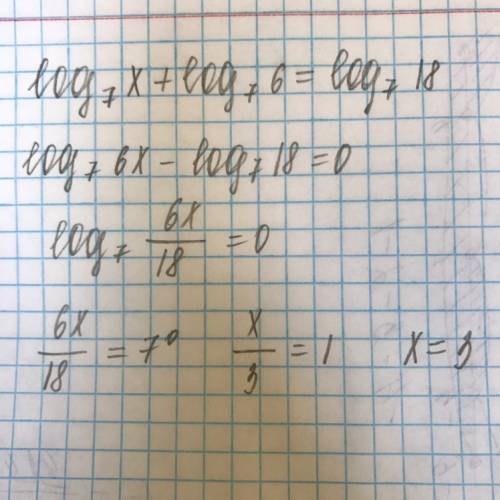 log₇ x + log₇ 6 = log₇ 18
log₇ 6x − log₇ 18 = 0
log₇ 6x/18 = 0
6x/18 = 7⁰ x/3 = 1 x = 3